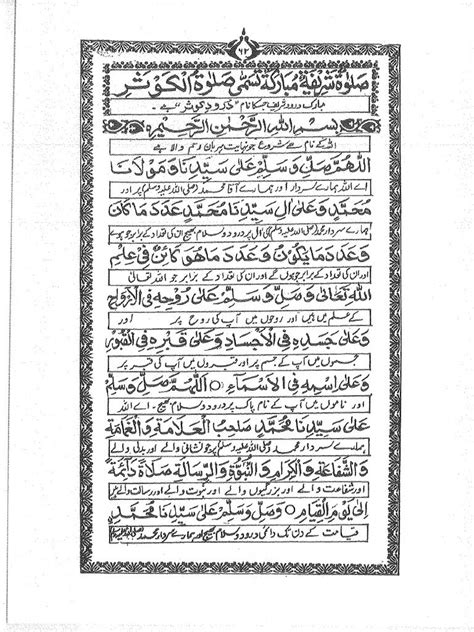 ۶۲
صَلٰوةٌ شَرِيْفَةٌ مُبَارَكَةٌ تُسَمّٰى صَلٰوةَ الْكَوْثَرِ
مبارک درود شریف جسکا نام "درود کوثر" ہے۔
بِسْمِ اللهِ الرَّحْمٰنِ الرَّحِيْمِ
اللہ کے نام سے شروع جو نہایت مہربان رحم والا ہے
اَللّٰهُمَّ صَلِّ وَسَلِّمْ عَلٰى سَيِّدِنَا وَمَوْلَانَا
اے اللہ ہمارے سردار اور ہمارے آقا محمد (صلی اللہ علیہ وسلم) پر اور
مُحَمَّدٍ وَّعَلٰى اٰلِ سَيِّدِنَا مُحَمَّدٍ عَدَدَ مَا كَانَ
ہمارے سردار محمد (صلی اللہ علیہ وسلم) کی آل پر درود و سلام بھیج ان کی تعداد کے برابر جو ہوئے
وَعَدَدَ مَا يَكُوْنُ وَعَدَدَ مَا هُوَ كَائِنٌ فِيْ عِلْمِ
اور ان کی تعداد کے برابر جو ہوں گے اور ان کی تعداد کے برابر جو اللہ تعالیٰ
اللهِ تَعَالٰى وَصَلِّ وَسَلِّمْ عَلٰى رُوْحِهٖ فِي الْاَرْوَاحِ
کے علم میں ہیں اور روحوں میں آپ کی روح پر اور
وَعَلٰى جَسَدِهٖ فِي الْاَجْسَادِ وَعَلٰى قَبْرِهٖ فِي الْقُبُوْرِ
جسموں میں آپ کے جسم پر اور قبروں میں آپ کی قبر پر
وَعَلٰى اِسْمِهٖ فِي الْاَسْمَآءِ ○ اَللّٰهُمَّ صَلِّ وَسَلِّمْ
اور ناموں میں آپ کے نام پاک پر درود و سلام بھیج۔ اے اللہ
عَلٰى سَيِّدِنَا مُحَمَّدٍ صَاحِبِ الْعَلَامَةِ وَالْغَمَامَةِ
ہمارے سردار محمد صلی اللہ علیہ وسلم پر جو نشانی والے اور بدلی والے
وَالشَّفَاعَةِ وَالْكَرَامَةِ وَالنُّبُوَّةِ وَالرِّسَالَةِ صَلَاةً دَائِمَةً
اور شفاعت والے اور بزرگیوں والے اور نبوت والے اور رسالت والے پر
اِلٰى يَوْمِ الْقِيَامِ ○ وَصَلِّ وَسَلِّمْ عَلٰى سَيِّدِنَا مُحَمَّدٍ
قیامت کے دن تک دائمی درود و سلام بھیج اور ہمارے سردار محمد صلی اللہ علیہ وسلم